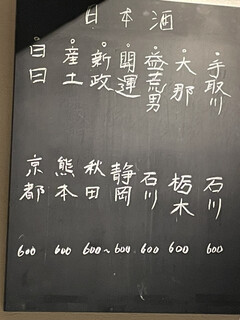 日本酒
・手取川 石川 600
・大那 栃木 600
・益荒男 石川 600
・開運 静岡 600
・新政 秋田 600～
・産土 熊本 600
・日日 京都 600